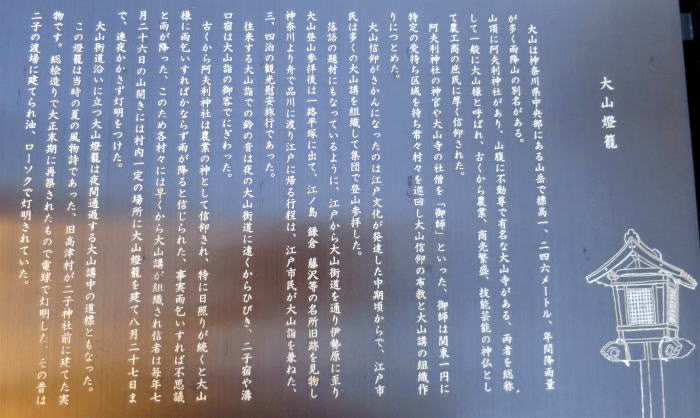 大山燈籠
大山は神奈川県中央部にある山岳で標高一、二四六メートル、年間降雨量
が多く雨降山の別名がある。
山頂に阿夫利神社があり、山腹に不動尊で有名な大山寺がある、両者を総称
して一般に大山様と呼ばれ、古くから農業、商売繁盛、技能芸能の神仏とし
て農工商の庶民に厚く信仰された。
阿夫利神社の神官や大山寺の社僧を「御師」といった、御師は関東一円に
特定の受持ち区域を持ち常々村々を巡回し大山信仰の布教と大山講の組織作
りにつとめた。
大山信仰がさかんになったのは江戸文化が発達した中期頃からで、江戸市
民は多くの大山講を組織して集団で登山参拝した。
落語の題材にもなっているように、江戸から大山街道を通り伊勢原に至り
大山登山参拝後は一路平塚に出て、江ノ島 鎌倉 藤沢等の名所旧跡を見物し
神奈川より舟で品川に渡り江戸に帰る行程は、江戸市民が大山詣を兼ねた、
三、四泊の観光慰安旅行であった。
往来する大山詣での鈴の音は夜の大山街道に遠くからひびき、二子宿や溝
口宿は大山詣の御客でにぎわった。
古くから阿夫利神社は農業の神として信仰され、特に日照りが続くと大山
様に雨乞いすればかならず雨が降ると信じられた、事実雨乞いすれば不思議
と雨が降った、このため各村々には早くから大山講が組織され信者は毎年七
月二十六日の山開きには村内一定の場所に大山燈籠を建て八月二十七日ま
で、連夜かかさず灯明をつけた。
大山街道沿いに立つ大山燈籠は夜間通過する大山講中の道標ともなった。
この燈籠は当時の夏の風物詩であった、旧高津村が二子神社前に建てた実
物です。総桧造りで大正末期に再築されたもので電球で灯明した、その昔は
二子の渡場に建てられ油、ローソクで灯明されていた。